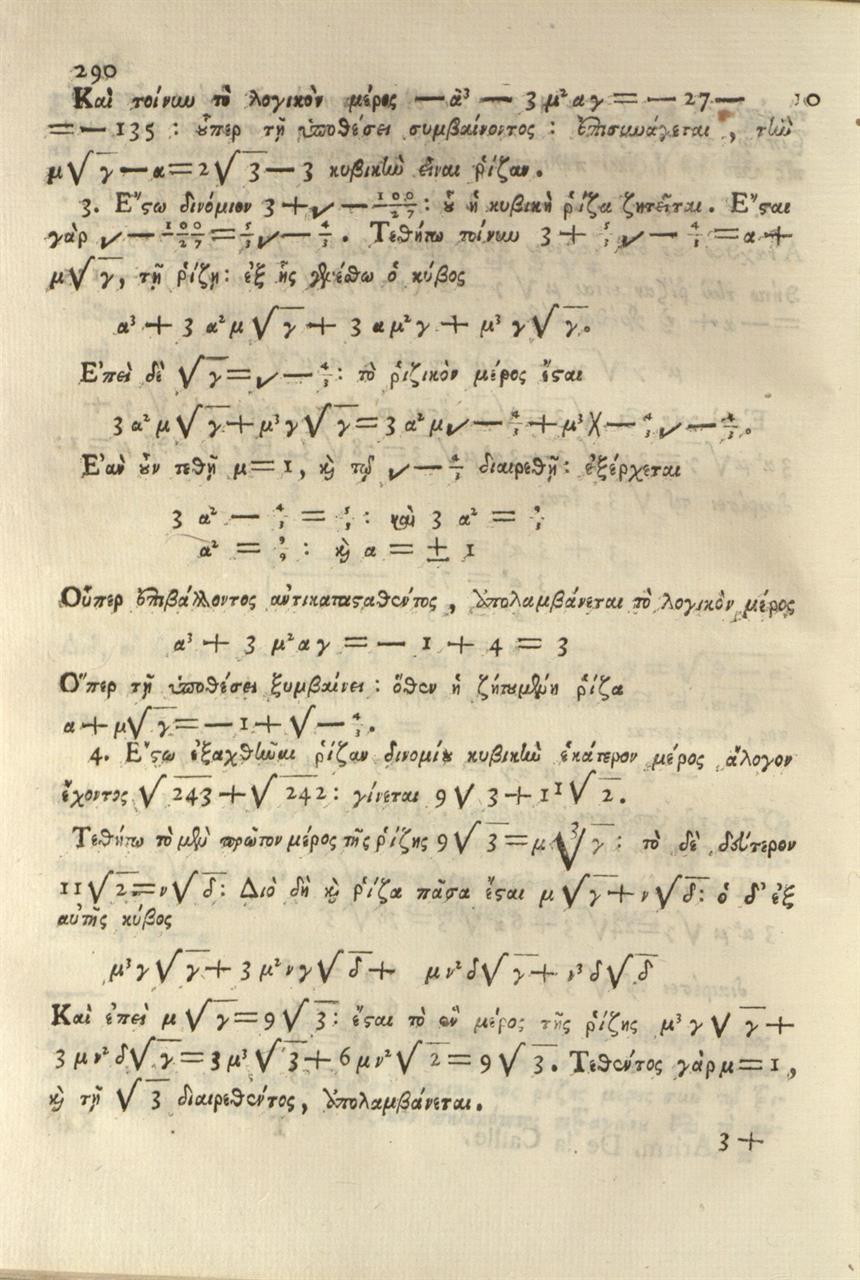 290
Καὶ τοίνυν τὸ λογικὸν μέρος — α³ — 3 μ² α γ = — 27 — 10
= — 135 : ὅπερ τῇ ὑποθέσει συμβαίνοντος : ἐπισυνάγεται , τὴν
μ√γ — α = 2√3 — 3 κυβικὴν εἶναι ῥίζαν .
3. Ἔστω δινόμιον 3 + √ — 100/27 : οὗ ἡ κυβικὴ ῥίζα ζητεῖται . Ἔσται
γὰρ √ — 100/27 = 5/3 √ — 4/3 . Τεθήτω τοίνυν 3 + 5/3 √ — 4/3 = α +
μ√γ , τῇ ῥίζῃ : ἐξ ἧς γενέσθω ὁ κύβος
α³ + 3 α² μ √γ + 3 α μ² γ + μ³ γ √γ .
Ἐπεὶ δὲ √γ = √ — 4/3 : τὸ ῥιζικὸν μέρος ἔσται
3 α² μ √γ + μ³ γ √γ = 3 α² μ √ — 4/3 + μ³ Χ — 4/3 √ — 4/3 .
Ἐὰν οὖν τεθῇ μ = 1 , καὶ τῷ √ — 4/3 διαιρεθῇ : ἐξέρχεται
3 α² — 4/3 = 5/3 : καὶ 3 α² = 9/3
α² = 9/9 : καὶ α = ± 1
Οὗπερ ἐπιβάλλοντος ἀντικατασταθέντος , ὑπολαμβάνεται τὸ λογικὸν μέρος
α³ + 3 μ² α γ = — 1 + 4 = 3
Ὅπερ τῇ ὑποθέσει ξυμβαίνει : ὅθεν ἡ ζητουμένη ῥίζα
α + μ√γ = — 1 + √ — 4/3 .
4. Ἔστω ἐξαχθῆναι ῥίζαν δινομίου κυβικὴν ἑκάτερον μέρος ἄλογον
ἔχοντος √243 + √242 : γίνεται 9 √ 3 + 11 √ 2 .
Τεθήτω τὸ μὲν πρῶτον μέρος τῆς ῥίζης 9 √3 = μ ³√γ : τὸ δὲ δεύτερον
11√2 = ν√δ : Διὸ δὴ καὶ ῥίζα πᾶσα ἔσται μ √γ + ν √δ : ὁ δ' ἐξ
αὐτῆς κύβος
μ³ γ √γ + 3 μ² ν γ √δ + μ ν² δ √γ + ν³ δ √δ
Καὶ ἐπεὶ μ √γ = 9 √3 : ἔσται τὸ ἓν μέρος τῆς ῥίζης μ³ γ √ γ +
3 μ ν² δ √γ = 3 μ³ √3 + 6 μ ν² √2 = 9 √3 . Τεθέντος γὰρ μ = 1 ,
καὶ τῇ √3 διαιρεθέντος , ὑπολαμβάνεται .
3 +